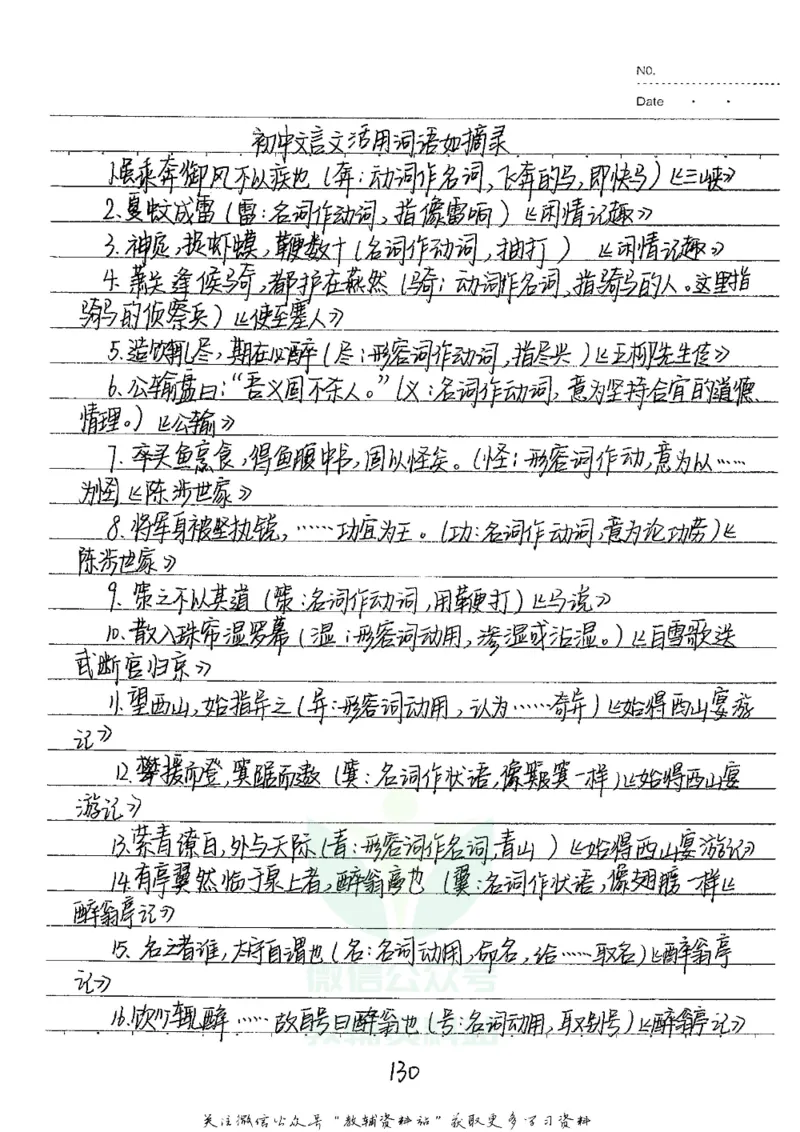 NO.
Date
初中文言文活用词语如摘录
1.虽乘奔御风不以疾也（奔：动词作名词，飞奔的马，即快马）《三峡》
2.夏蚊成雷（雷：名词作动词，指像雷响）《闲情记趣》
3.神定，捉虾蟆，鞭数十（名词作动词，抽打）《闲情记趣》
4.萧关逢候骑，都护在燕然（骑：动词作名词，指骑马的人。这里指
骑马的侦察兵）《使至塞上》
5.造饮辄尽，期在必醉（尽：形容词作动词，指尽兴）《五柳先生传》
6.公输盘曰：“吾义固不杀人。”（义：名词作动词，意为坚持合宜的道德
情理。）《公输》
7.卒买鱼烹食，得鱼腹中书，固以怪矣。（怪：形容词作动，意为以……
为怪《陈涉世家》
8.将军身被坚执锐，……功宜为王。（功：名词作动词，意为论功劳）《
陈涉世家》
9.策之不以其道（策：名词作动词，用鞭打）《马说》
10.散入珠帘湿罗幕（湿：形容词动用，渗湿或沾湿。）《白雪歌送
武断官归京》
11.望西山，始指异之（异：形容词动用，认为……奇异）《始得西山宴游
记》
12.攀援而登，箕踞而遨（箕：名词作状语，像簸箕一样）《始得西山宴
游记》
13.萦青缭白，外与天际（青：形容词作名词，青山）《始得西山宴游记》
14.有亭翼然临于泉上者，醉翁亭也（翼：名词作状语，像翅膀一样《
醉翁亭记》
15.名之者谁，太守自谓也（名：名词动用，命名，给……取名）《醉翁亭
记》
16.饮少辄醉……故自号曰醉翁也（号：名词动用，取别号）《醉翁亭记》
微信公众号
教辅资料站
130
关注微信公众号“教辅资料站”获取更多学习资料